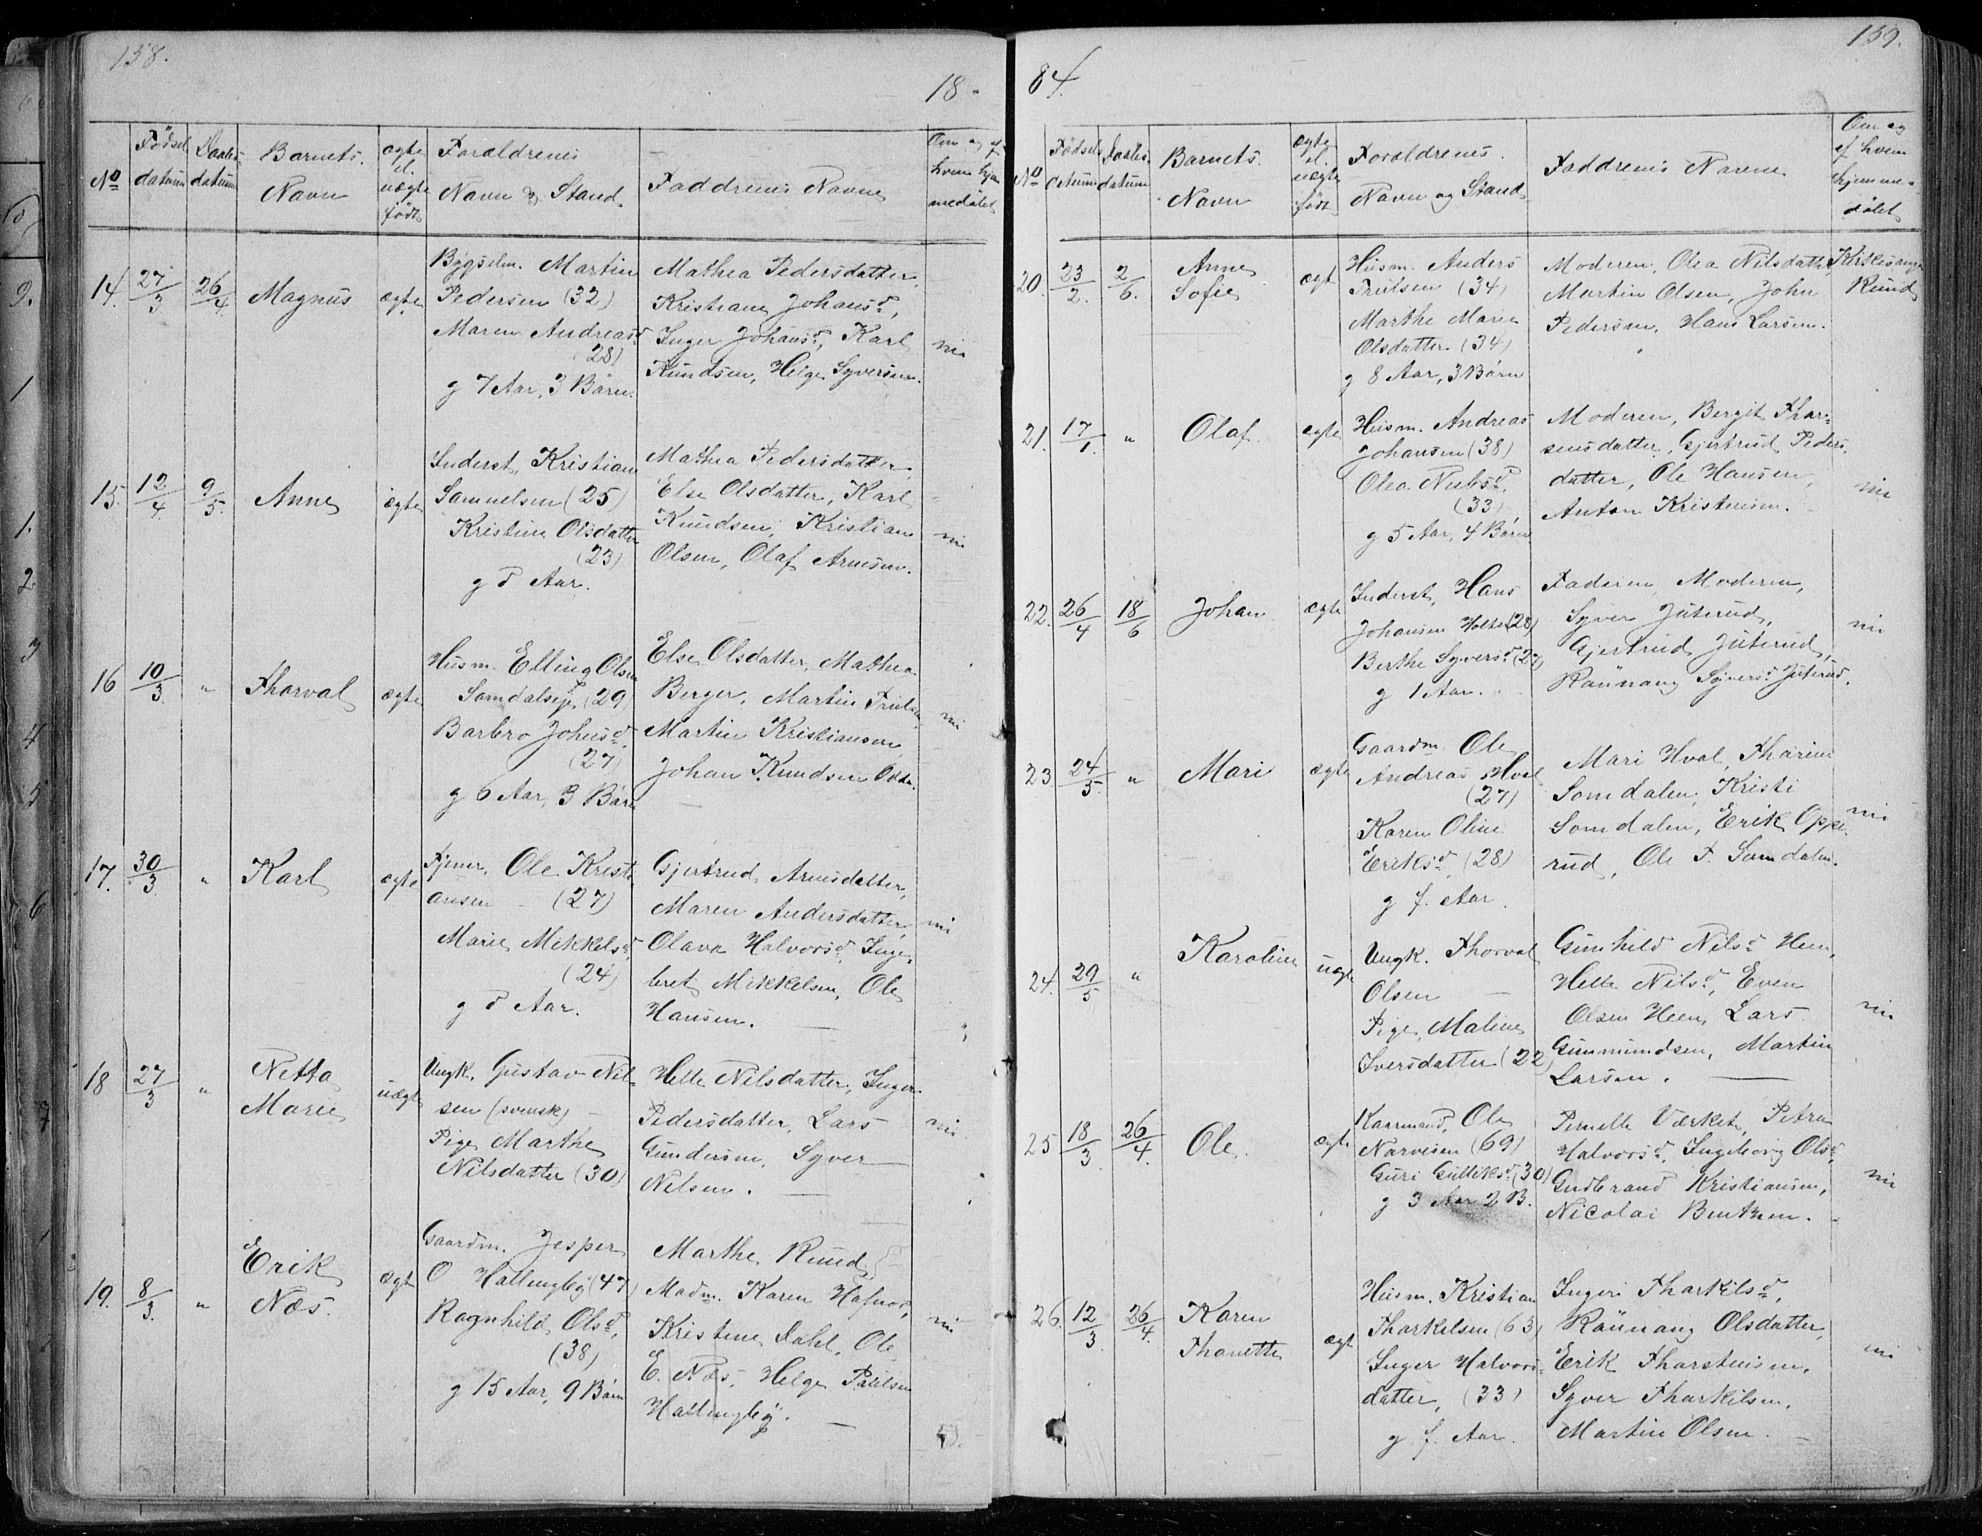 158.
18-
No
Fødsels datum
Daabs datum
Barnets Navn
ægte el. uægte født
Forældrenes Navn og Stand
Faddrenes Navne
Om og af hvem hjemmedøbt
14.
27/3
26/4
Magnus
ægte
Bygselm. Martin
Pedersen (32)
Maren Andreasd.
(28)
g 7 Aar, 3 Børn.
Mathea Pedersdatter,
Kristiane Johansd.,
Inger Johansd., Karl
Knudsen, Helge Syversen.
nei
15.
12/4
9/5
Anne
ægte
Inderst, Kristian
Samuelsen (25)
Kristine Olsdatter
(23)
g d Aar.
Mathea Pedersdatter,
Else Olsdatter, Karl
Knudsen, Kristian
Olsen, Olaf Arnesen.
nei
16
10/3
"
Thorval
ægte
Husm. Elling Olsen
Somdalseje (29)
Barbro Johnsd.
(27)
g 6 Aar, 3 Børn
Else Olsdatter, Mathea
Berger, Martin
Martin Kristiansen
Johan Knudsen
nei
17.
30/3
"
Karl
ægte
Tjener, Ole Kristi
ansen - (27)
Marie Mikkelsd.
(24)
g d Aar.
Gjertrud Arnesdatter,
Maren Andersdatter,
Olava Halvorsd., Inge,
bret Mikkelsen, Ole
Hansen.
nei
18
27/3
"
Netta
Marie
uægte
Ungk. Gustav Nil
sen (svensk) -
Pige Marthe
Nilsdatter (30)
Helle Nilsdatter, Inger
Pedersdatter, Lars
Gundersen, Syver
Nilsen.
nei
19.
8/3
"
Erik
Næs.
ægte
Gaardm. Jesper
O Hallingby (47)
Ragnhild Olsd.,
(38)
g 15 Aar, 9 Børn
Marthe Ruud,
Madm. Karen Hafnor,
Kristine Dahl, Ole
E. Næs, Helge Paulsen
Hallingby.
nei
159.
84.
No
Fødsels datum
Daabs datum
Barnets Navn
ægte el. uægte født
Forældrenes Navn og Stand
Faddrenes Navne
Om og af hvem hjemmedøbt
20.
23/2.
2/6.
Anne
Sofie
ægt
Husm. Anders
Trulsen (34)
Marthe Marie
Olsdatter (34)
g 8 Aar, 3 Børn
Moderen, Olea Nilsdatter
Martin Olsen, John
Pedersen, Hans Larsen.
Kirkesanger
Ruud
21.
17/1.
"
Olaf.
ægte
Husm. Andreas
Johansen (38)
Olea Nilsd.
(33)
g 5 Aar, 4 Børn
Moderen, Bergit Thor-
sensdatter, Gjertrud Peders
datter, Ole Hansen,
Anton Kristensen.
nei
22.
26/4
18/6
Johan
ægte
Inderst, Hans
Johansen Holte (28)
Berthe Syversd. (27)
g 1 Aar.
Faderen, Moderen,
Syver Juterud,
Gjertrud Juterud,
Rannang Syversd. Juterud.
nei
23
24/5.
"
Mari
ægte
Gaardm. Ole
Andreas Hval
(27)
Karen Oline
Eriksd. (28)
g f. Aar.
Mari Hval, Thorine
Somdalen, Kristi
Somdalen, Erik Oppe-
rud, Ole T. Somdalen.
nei
24.
29/5
"
Karoline
uægt
Ungk. Thorval
Olsen -
Pige, Maline
Iversdatter (22)
Gunhild Nilsd. Heen,
Helle Nilsd., Even
Olsen Heen, Lars
Gunmundsen, Martin
Larsen.
nei
25
18/3
26/4.
Ole.
ægte
Kaarmand, Ole
Narvesen (69)
Guri Gulliksd. (30)
g 3 Aar 2 B.
Pernelle Værket, Petra
Halvorsd., Ingeborg Olsd.,
Gudbrand Kristiansen,
Nicolai Bentzen.
nei
26.
12/3.
26/4.
Karen
Thonette
ægt
Husm. Kristian
Tharkelsen (63)
Inger Halvors-
datter, (33)
g f. Aar.
Ingeri Tharkilsd.,
Rannang Olsdatter,
Erik Tharstensen,
Syver Tharkilsen,
Martin Olsen.
nei